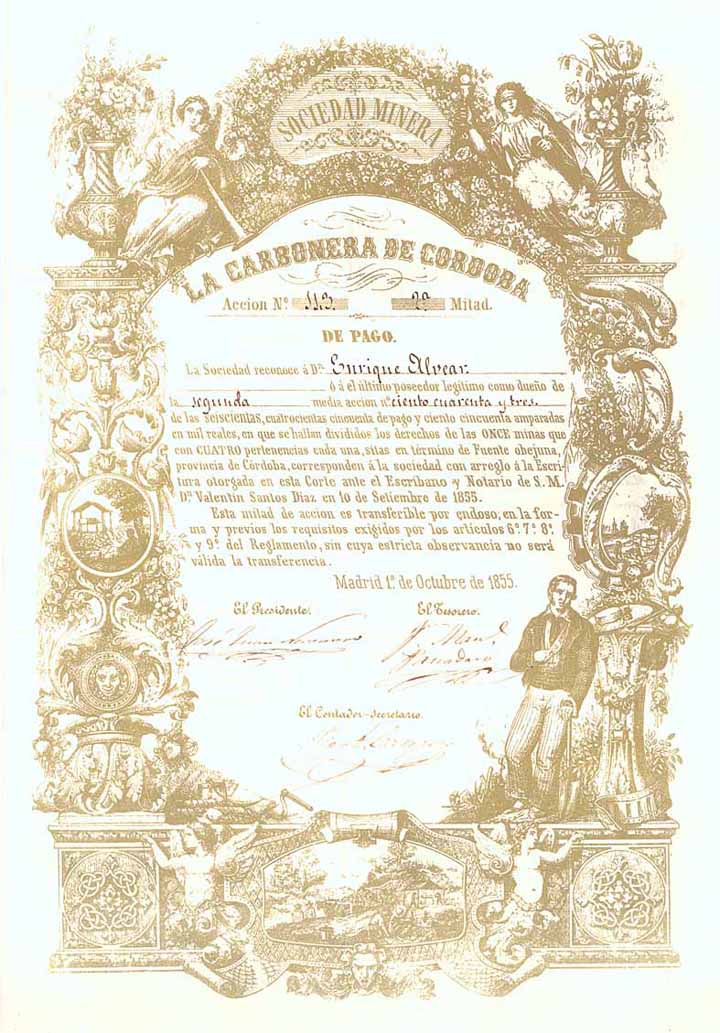 SOCIEDAD MINERA
LA CARBONERA DE CORDOBA
Accion Nº 143 2ª Mitad.
DE PAGO.
La Sociedad reconoce á Dn. Enrique Alvear.
ó á el último poseedor legítimo como dueño de
la segunda media accion nº ciento cuarenta y tres
de las seiscientas, cuatrocientas cincuenta de pago y ciento cincuenta amparadas
en mil reales, en que se hallan divididos los derechos de las ONCE minas que
con CUATRO pertenencias cada una, sitas en término de Fuente obejuna,
provincia de Córdoba, corresponden á la sociedad con arreglo á la Escri-
tura otorgada en esta Corte ante el Escribano y Notario de S. M.
Dn. Valentin Santos Diaz en 10 de Setiembre de 1855.
Esta mitad de accion es transferible por endoso, en la for-
ma y previos los requisitos exigidos por los artículos 6º 7º 8º
y 9º del Reglamento, sin cuya estricta observancia no será
válida la transferencia.
Madrid 1º de Octubre de 1855.
El Presidente. El Tesorero.
El Contador-Secretario.